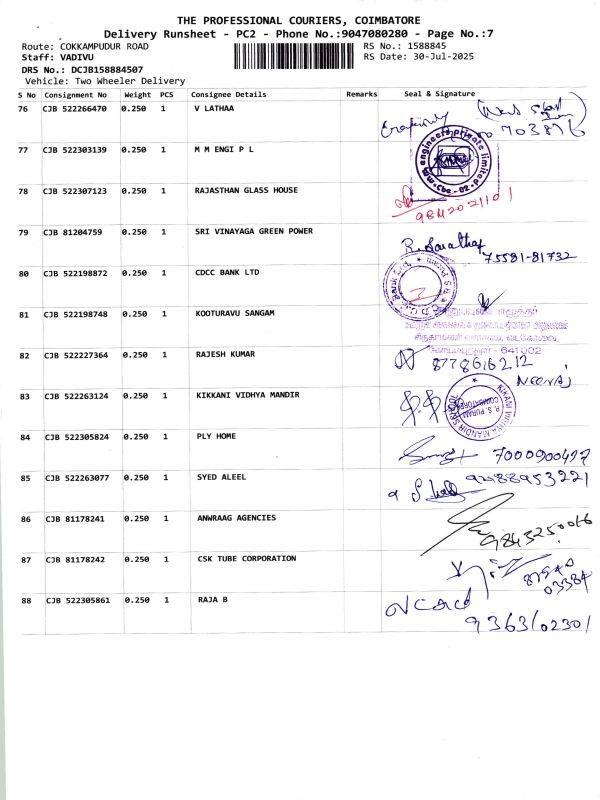 THE PROFESSIONAL COURIERS, COIMBATORE
Delivery Runsheet - PC2 - Phone No.:9047080280 - Page No.:7
Route: COKKAMPUDUR ROAD RS No.: 1588845
Staff: VADIVU RS Date: 30-Jul-2025
DRS No.: DCJB158884507
Vehicle: Two Wheeler Delivery
S No Consignment No Weight PCS Consignee Details Remarks Seal & Signature
76 CJB 522266470 0.250 1 V LATHAA
77 CJB 522303139 0.250 1 M M ENGI P L
78 CJB 522307123 0.250 1 RAJASTHAN GLASS HOUSE
9842021101
79 CJB 81204759 0.250 1 SRI VINAYAGA GREEN POWER
75581-81732
80 CJB 522198872 0.250 1 CDCC BANK LTD
81 CJB 522198748 0.250 1 KOOTURAVU SANGAM
641002
82 CJB 522227364 0.250 1 RAJESH KUMAR
8778616212
NEERAJ
83 CJB 522263124 0.250 1 KIKKANI VIDHYA MANDIR
84 CJB 522305824 0.250 1 PLY HOME
7000900497
85 CJB 522263077 0.250 1 SYED ALEEL
86 CJB 81178241 0.250 1 ANWRAAG AGENCIES
9843250066
87 CJB 81178242 0.250 1 CSK TUBE CORPORATION
87940
03384
88 CJB 522305861 0.250 1 RAJA B
9363102301